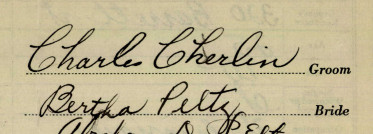 Charles Cherlin Groom
Bertha Petty Bride